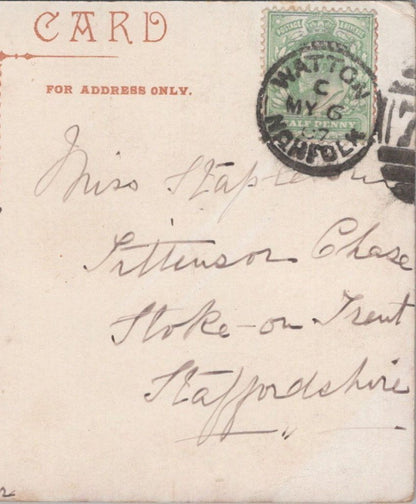 CARD
FOR ADDRESS ONLY.
POSTAGE REVENUE
HALF PENNY
WATTON
C
MY 6
07
NORFOLK
7
Miss
Tittensor Chase
Stoke-on Trent
Staffordshire